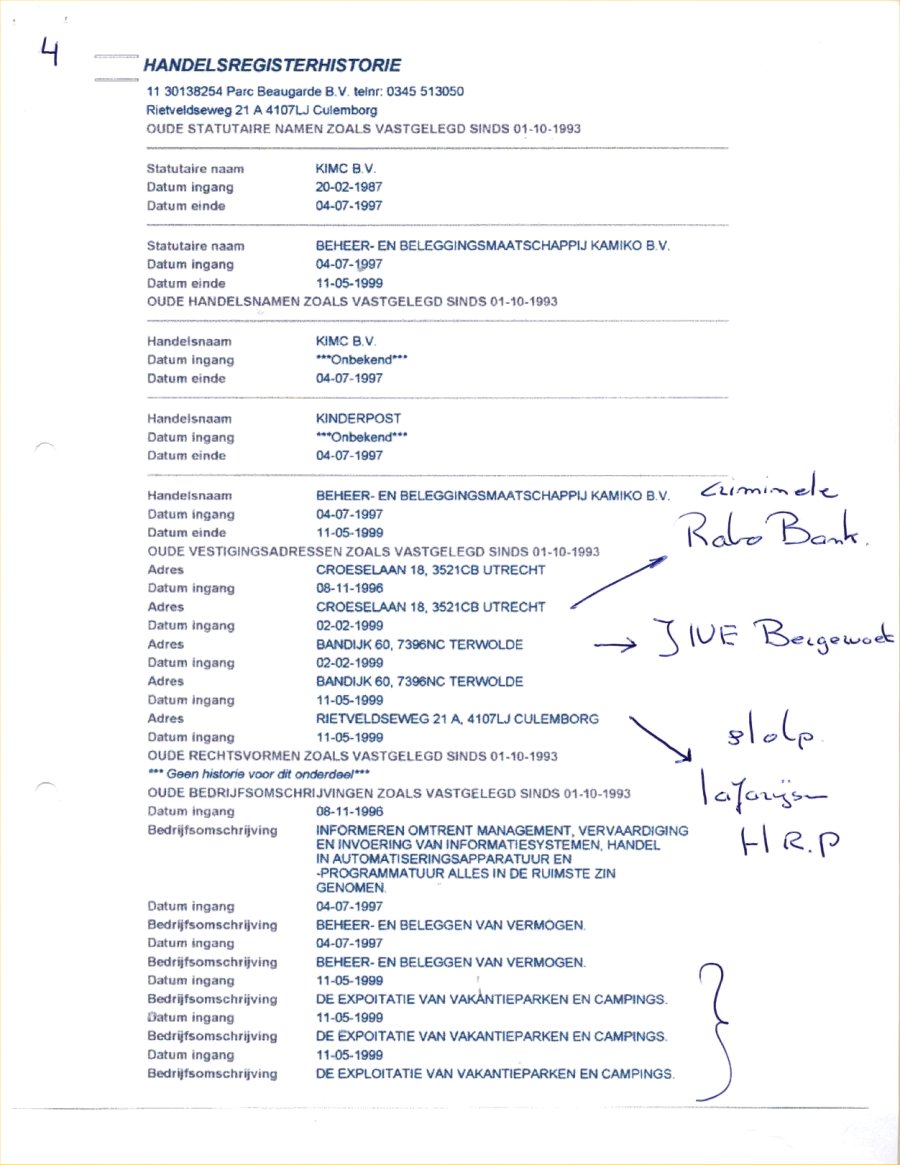 4
HANDELSREGISTERHISTORIE
11 30138254 Parc Beaugarde B.V. telnr: 0345 513050
Rietveldseweg 21 A 4107LJ Culemborg
OUDE STATUTAIRE NAMEN ZOALS VASTGELEGD SINDS 01-10-1993
Statutaire naam KIMC B.V.
Datum ingang 20-02-1987
Datum einde 04-07-1997
Statutaire naam BEHEER- EN BELEGGINGSMAATSCHAPPIJ KAMIKO B.V.
Datum ingang 04-07-1997
Datum einde 11-05-1999
OUDE HANDELSNAMEN ZOALS VASTGELEGD SINDS 01-10-1993
Handelsnaam KIMC B.V.
Datum ingang ***Onbekend***
Datum einde 04-07-1997
Handelsnaam KINDERPOST
Datum ingang ***Onbekend***
Datum einde 04-07-1997
Handelsnaam BEHEER- EN BELEGGINGSMAATSCHAPPIJ KAMIKO B.V. criminele
Datum ingang 04-07-1997
Datum einde 11-05-1999 Rabo Bank.
OUDE VESTIGINGSADRESSEN ZOALS VASTGELEGD SINDS 01-10-1993
Adres CROESELAAN 18, 3521CB UTRECHT
Datum ingang 08-11-1996
Adres CROESELAAN 18, 3521CB UTRECHT
Datum ingang 02-02-1999
Adres BANDIJK 60, 7396NC TERWOLDE
Datum ingang 02-02-1999
Adres BANDIJK 60, 7396NC TERWOLDE
Datum ingang 11-05-1999
Adres RIETVELDSEWEG 21 A, 4107LJ CULEMBORG
Datum ingang 11-05-1999
OUDE RECHTSVORMEN ZOALS VASTGELEGD SINDS 01-10-1993
*** Geen historie voor dit onderdeel***
OUDE BEDRIJFSOMSCHRIJVINGEN ZOALS VASTGELEGD SINDS 01-10-1993
Datum ingang 08-11-1996
Bedrijfsomschrijving INFORMEREN OMTRENT MANAGEMENT, VERVAARDIGING
EN INVOERING VAN INFORMATIESYSTEMEN, HANDEL
IN AUTOMATISERINGSAPPARATUUR EN
-PROGRAMMATUUR ALLES IN DE RUIMSTE ZIN
GENOMEN.
H R.P
Datum ingang 04-07-1997
Bedrijfsomschrijving BEHEER- EN BELEGGEN VAN VERMOGEN.
Datum ingang 04-07-1997
Bedrijfsomschrijving BEHEER- EN BELEGGEN VAN VERMOGEN.
Datum ingang 11-05-1999
Bedrijfsomschrijving DE EXPOITATIE VAN VAKANTIEPARKEN EN CAMPINGS.
Datum ingang 11-05-1999
Bedrijfsomschrijving DE EXPOITATIE VAN VAKANTIEPARKEN EN CAMPINGS.
Datum ingang 11-05-1999
Bedrijfsomschrijving DE EXPLOITATIE VAN VAKANTIEPARKEN EN CAMPINGS.